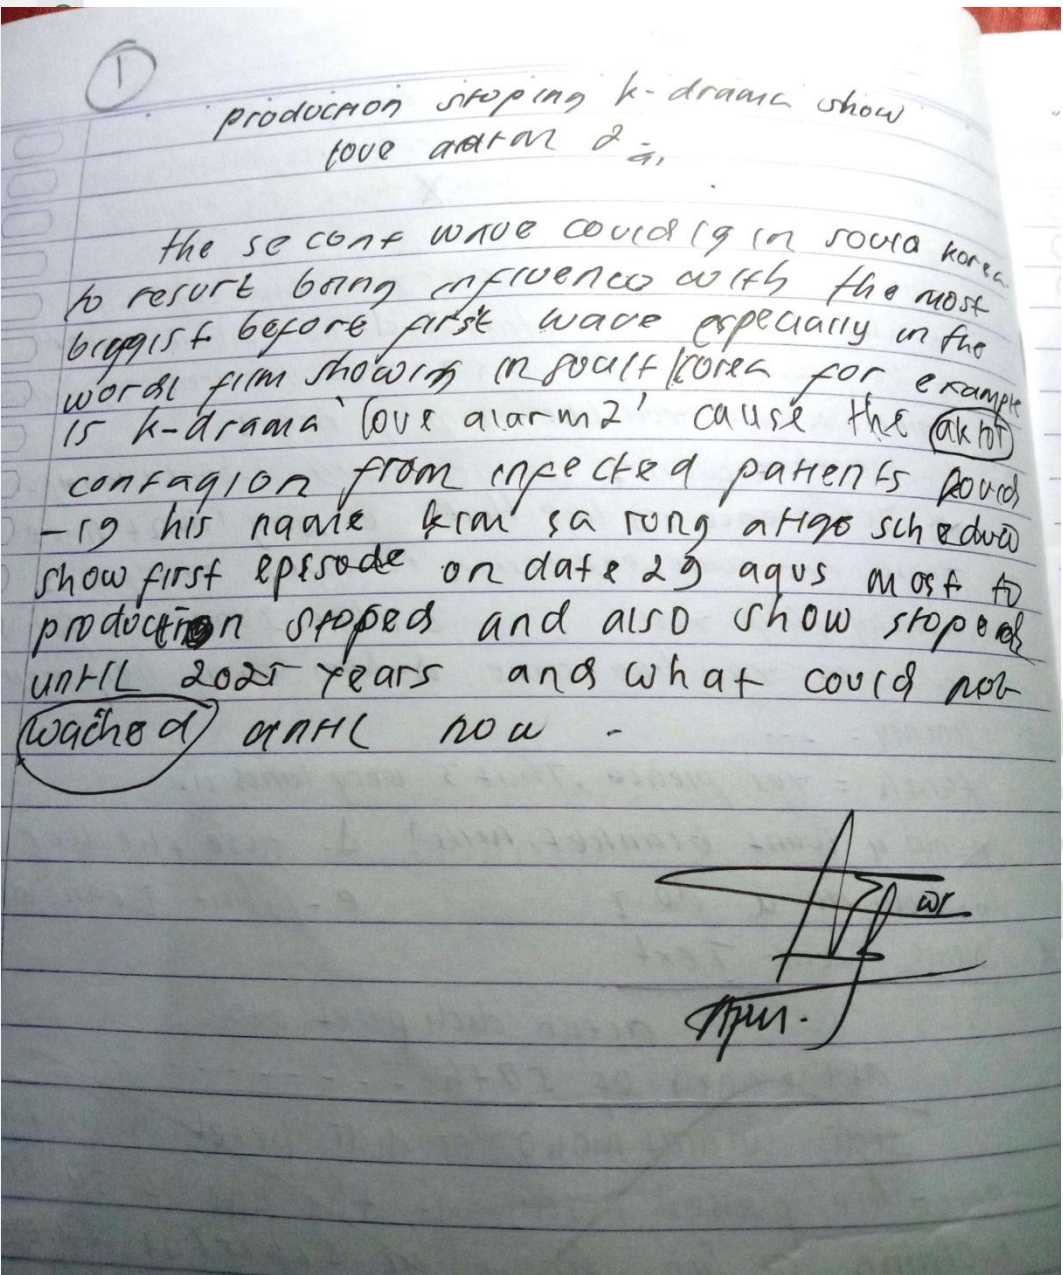 1
production stoping k-drama show
love alarm 2
the second wave covid 19 in souta korea
to resurt being influence with the most
biggist before first wave especially in the
world film showing in soult korea for example
is k-drama 'love alarm 2' cause the aktor
contagion from infected patients covid
-19 his name kim sa rong schedul
show first episode on date 29 agus most to
production stoped and also show stoped
until 2021 years and what could not
wached until now -